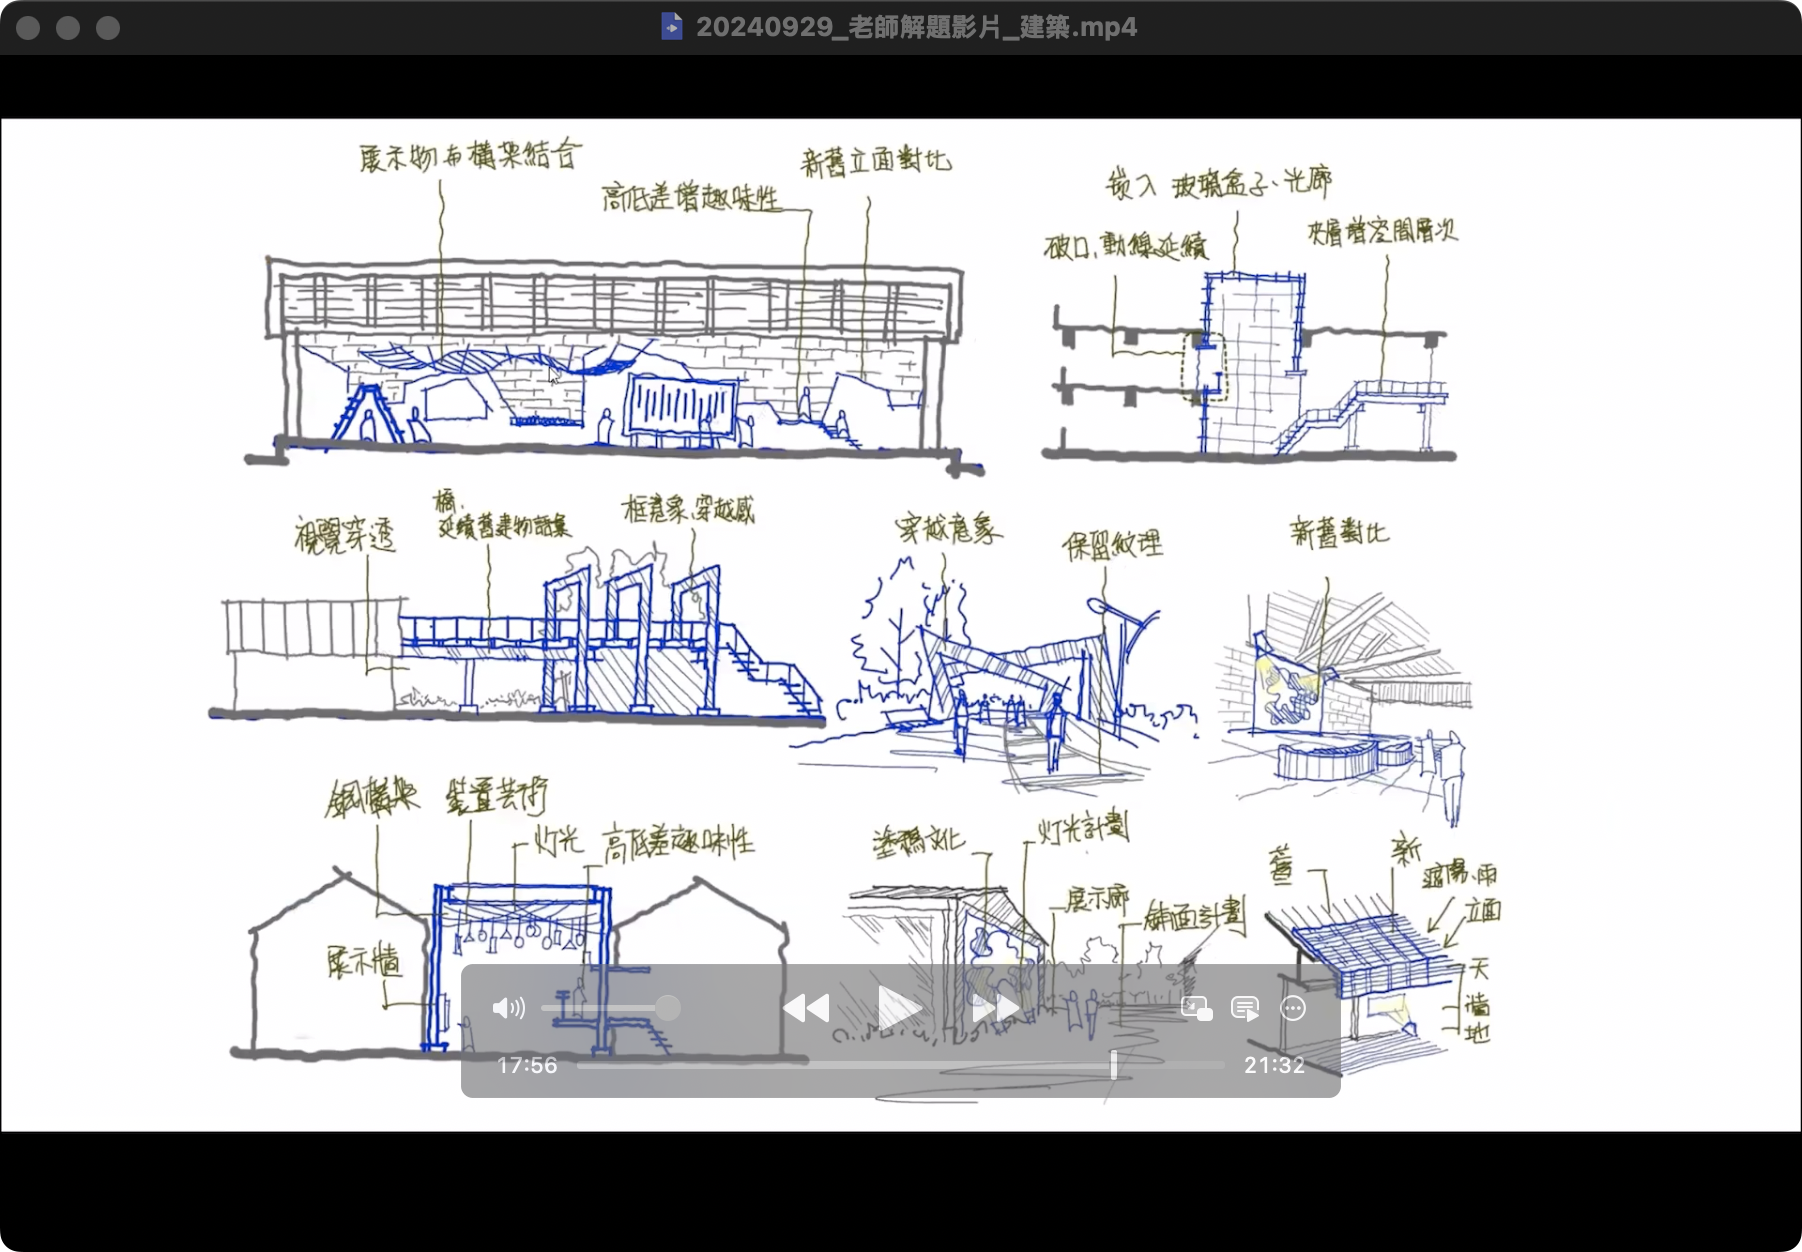 20240929_老師解題影片_建築.mp4
展示物与構架結合
高低差增趣味性
新舊立面對比
嵌入 玻璃盒子、光廊
破口、動線延續
夾層增空間層次
視覺穿透
橋、
延續舊建物語彙
框意象、穿越感
穿越意象
保留紋理
新舊對比
鋼構架
裝置芸術
灯光
高低差趣味性
展示牆
塗鴉文化
灯光計劃
展示廊
舖面計劃
舊
新
遮陽、雨
立面
天
牆
地
17:56
21:32